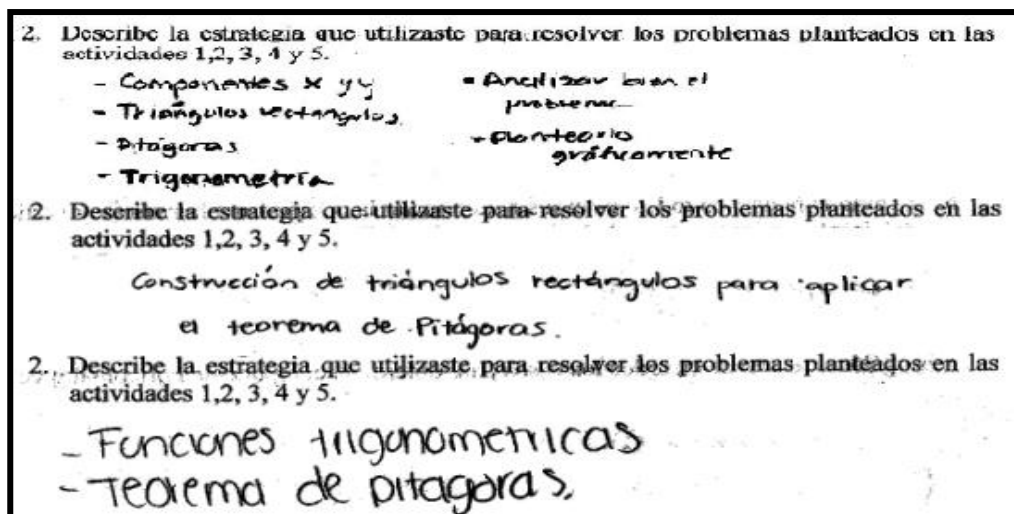 2. Describe la estrategia que utilizaste para resolver los problemas planteados en las
actividades 1,2, 3, 4 y 5.
- Componentes x y y
- Triángulos rectángulos.
- Pitágoras
- Trigonometría
- Analizar bien el
problema
- Plantearlo
gráficamente
2. Describe la estrategia que utilizaste para resolver los problemas planteados en las
actividades 1,2, 3, 4 y 5.
Construcción de triángulos rectángulos para aplicar
el teorema de Pitágoras.
2. Describe la estrategia que utilizaste para resolver los problemas planteados en las
actividades 1,2, 3, 4 y 5.
- Funciones trigonometricas
- Teorema de pitagoras.